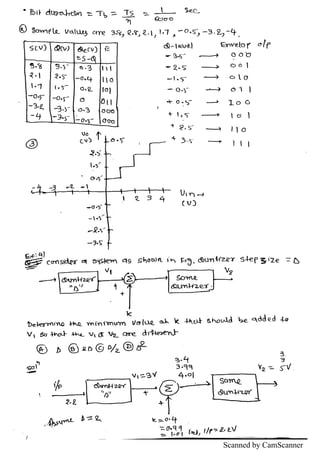 • Bit duration = Tb = Ts/5 = 1/6000 Sec.
⑥ Sample values are 3.8, 2.8, 2.1, 1.7, -0.5, -3.2, -4.
S(V) Q(V) Qe(V) = S-Q E
3.8 3.5 0.3 111
2.1 2.5 -0.4 110
1.7 1.5 0.2 101
-0.5 -0.5 0 011
-3.2 -3.5 0.3 000
-4 -3.5 -0.5 000
Q-level Envelop o/p
-3.5 → 000
-2.5 → 001
-1.5 → 010
-0.5 → 011
+0.5 → 100
+1.5 → 101
+2.5 → 110
+3.5 → 111
③
Vo (V)
2.5
1.5
0.5
-4 -3 -2 -1 1 2 3 4
Vin → (V)
-0.5
-1.5
-2.5
-3.5
consider a system as shown in Fig. Quntizer step size = Δ
V1 V2
Quntizer "Δ" Σ Some Quntizer
+ +
K
Determine the minimum value of K that should be added to
V1 so that the V1 & V2 are different
Ⓐ Δ Ⓑ 2Δ Ⓒ Δ/2 Ⓓ Δ²
Solⁿ
3.4
3.99
4.01
3
3
V2 = 5V
i/p
2.2
Quntizer "Δ"
V1 = 3V
+
Σ
Some Quntizer
Assume Δ = 2
K = 0.4
= 0.99
= 1.01
i/p = 2.2V
Scanned by CamScanner